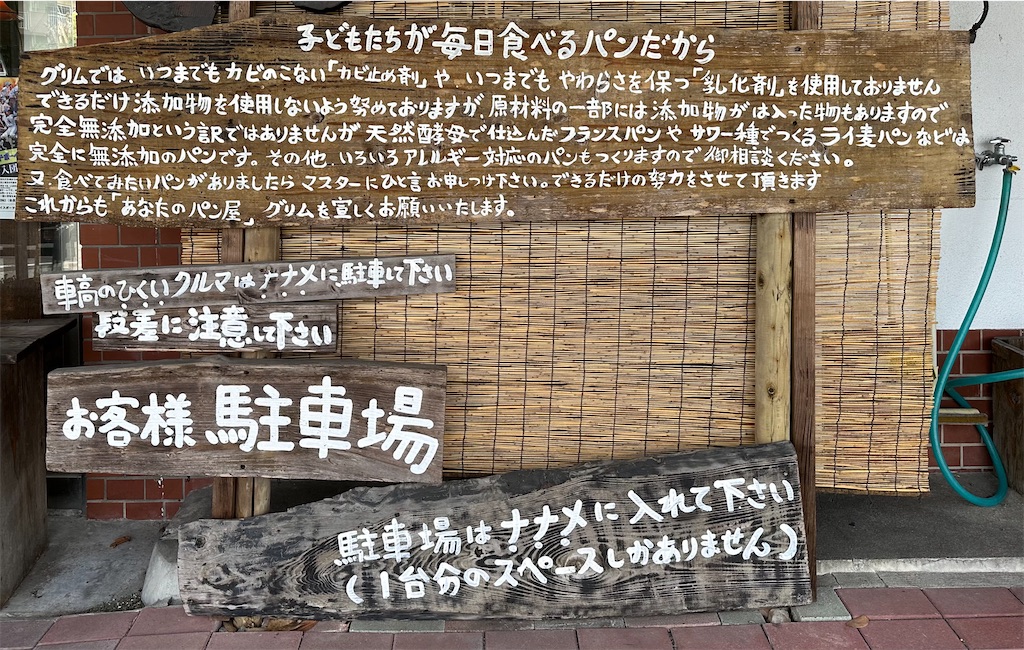 子どもたちが毎日食べるパンだから
グリムでは、いつまでもカビのこない「カビ止め剤」や、いつまでも やわらさを保つ「乳化剤」を使用しておりません
できるだけ添加物を使用しないよう努めておりますが、原材料の一部には添加物がは入った物もありますので
完全無添加という訳ではありませんが 天然酵母で仕込んだフランスパンや サワー種でつくるライ麦パンなどは
完全に無添加のパンです。その他、いろいろアレルギー対応のパンもつくりますので御相談ください。
又、食べてみたいパンがありましたら マスターにひと言お申しつけ下さい。できるだけの努力をさせて頂きます
これからも「あなたのパン屋」グリムを宜しくお願いいたします。
車高のひくいクルマはナナメに駐車して下さい
段差に注意して下さい
お客様駐車場
駐車場はナナメに入れて下さい
(1台分のスペースしかありません)